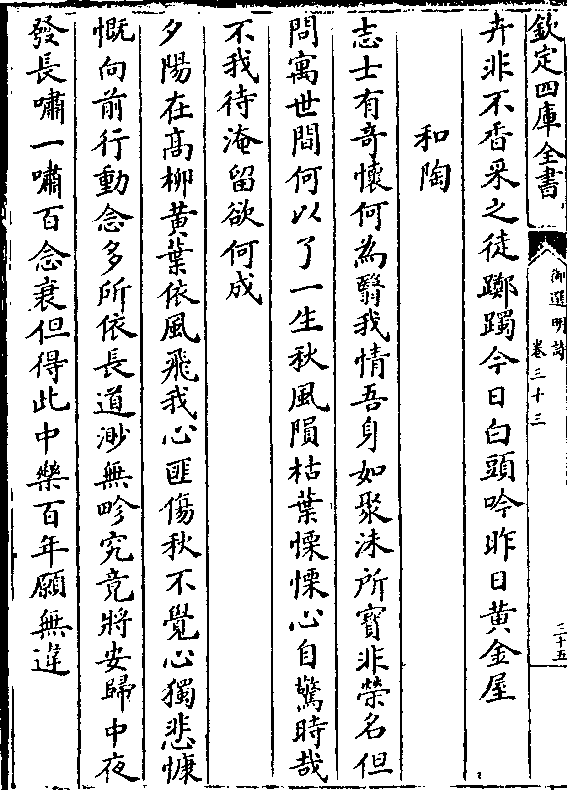 欽定四庫全書
御選明詩
卷三十三
三十五
卉非不香采之徒躑躅今日白頭吟昨日黃金屋
和陶
志士有奇懷何為翳我情吾身如聚沫所寶非榮名但
問寓世間何以了一生秋風隕枯葉慄慄心自驚時哉
不我待淹留欲何成
夕陽在髙柳黃葉依風飛我心匪傷秋不覺心獨悲慷
慨向前行動念多所依長道渺無畛究竟將安歸中夜
發長嘯一嘯百念衰但得此中樂百年願無違